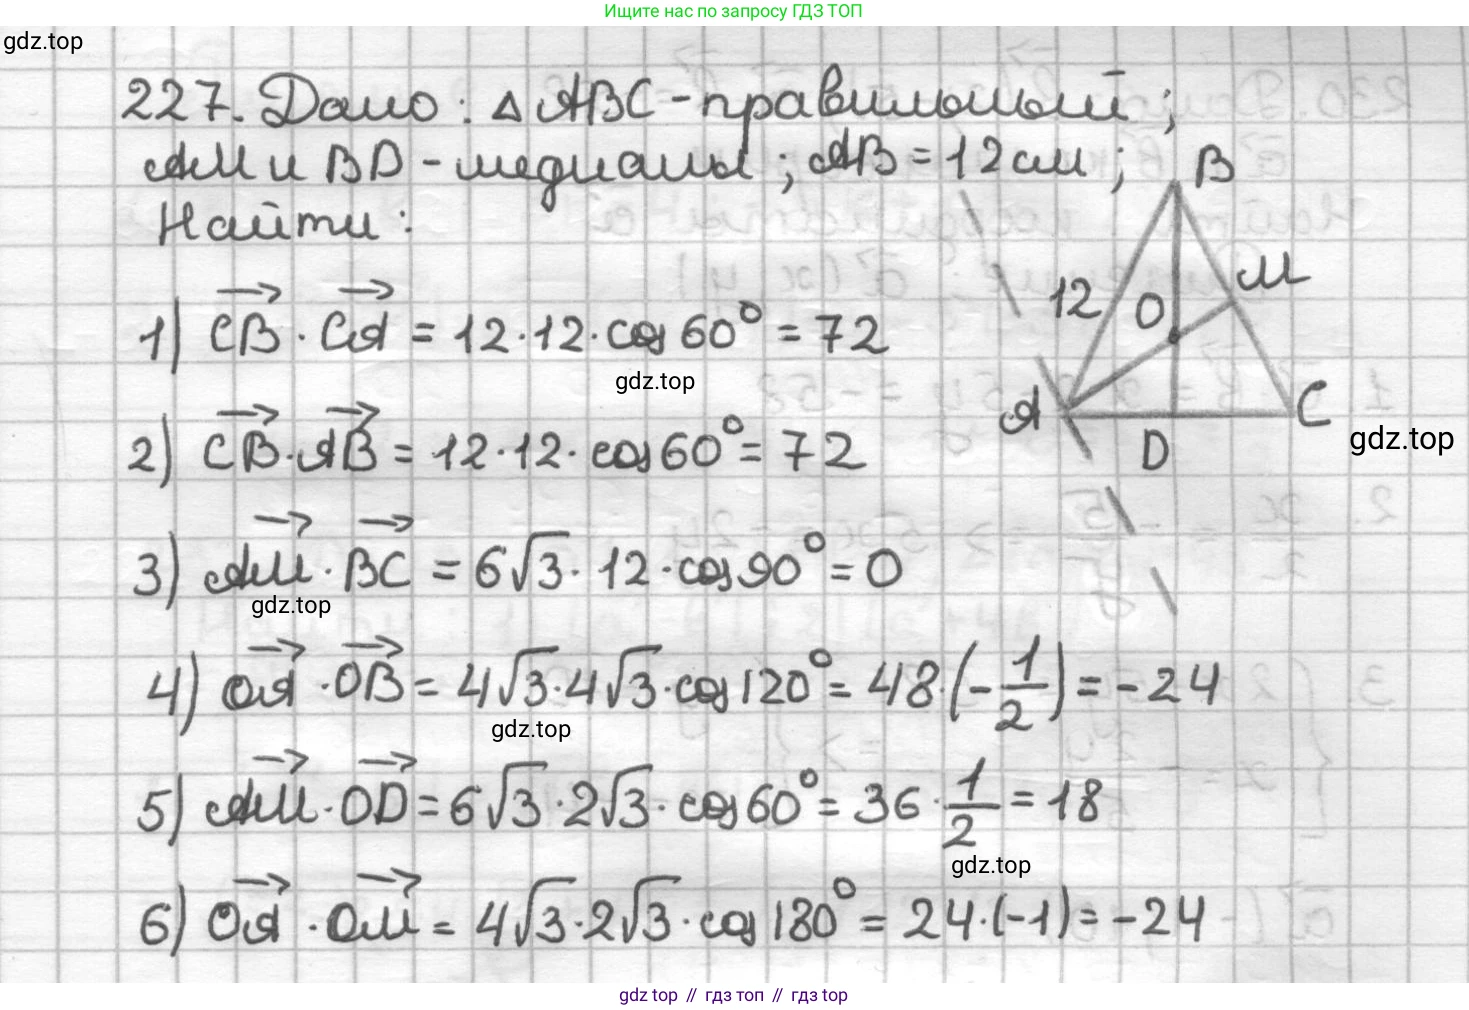 Ищите нас по запросу ГДЗ ТОП
gdz.top
227. Дано: △ABC - правильный;
AM и BD - медианы; AB = 12 см;
Найти:
B
M
12
O
A
C
D
1) CB · CA = 12 · 12 · cos 60° = 72
gdz.top
2) CB · AB = 12 · 12 · cos 60° = 72
gdz.top
3) AM · BC = 6√3 · 12 · cos 90° = 0
gdz.top
4) OA · OB = 4√3 · 4√3 · cos 120° = 48 · (-1/2) = -24
gdz.top
5) AM · OD = 6√3 · 2√3 · cos 60° = 36 · 1/2 = 18
gdz.top
6) OA · OM = 4√3 · 2√3 · cos 180° = 24 · (-1) = -24
gdz top // гдз топ // гдз top